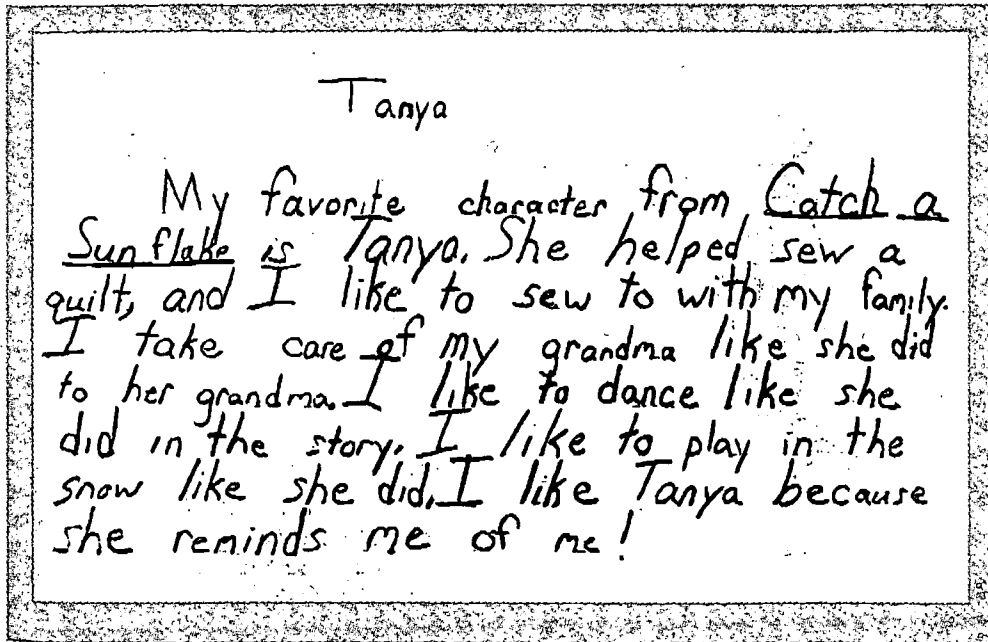 Tanya
My favorite character from Catch a
Sunflake is Tanya. She helped sew a
quilt, and I like to sew to with my family.
I take care of my grandma like she did
to her grandma. I like to dance like she
did in the story. I like to play in the
snow like she did. I like Tanya because
she reminds me of me!